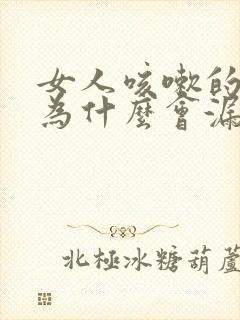 女人咳嗽的
為什麼會漏
北極冰糖葫蘆